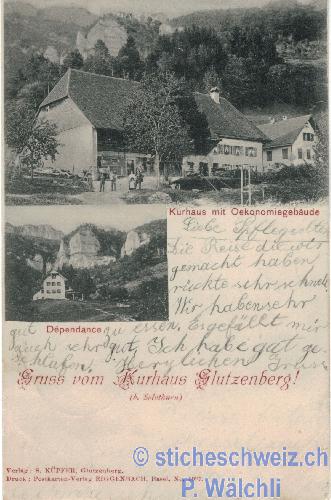 Kurhaus mit Oekonomiegebäude
Liebe Pflegeeltern
Die Reise die wir
gemacht haben
rückte sehr schnell.
Wir haben sehr
Dépendance
gut zu essen. Es gefällt mir
auch sehr gut, Ich habe gut ge-
schlafen. Herzlichen Gruss
Gruss vom Kurhaus Glutzenberg!
(b. Solothurn)
Verlag: S. KÜPFER, Glutzenberg.
Druck: Postkarten-Verlag RIGGENBACH, Basel, No.
© sticheschweiz.ch
P. Wälchli